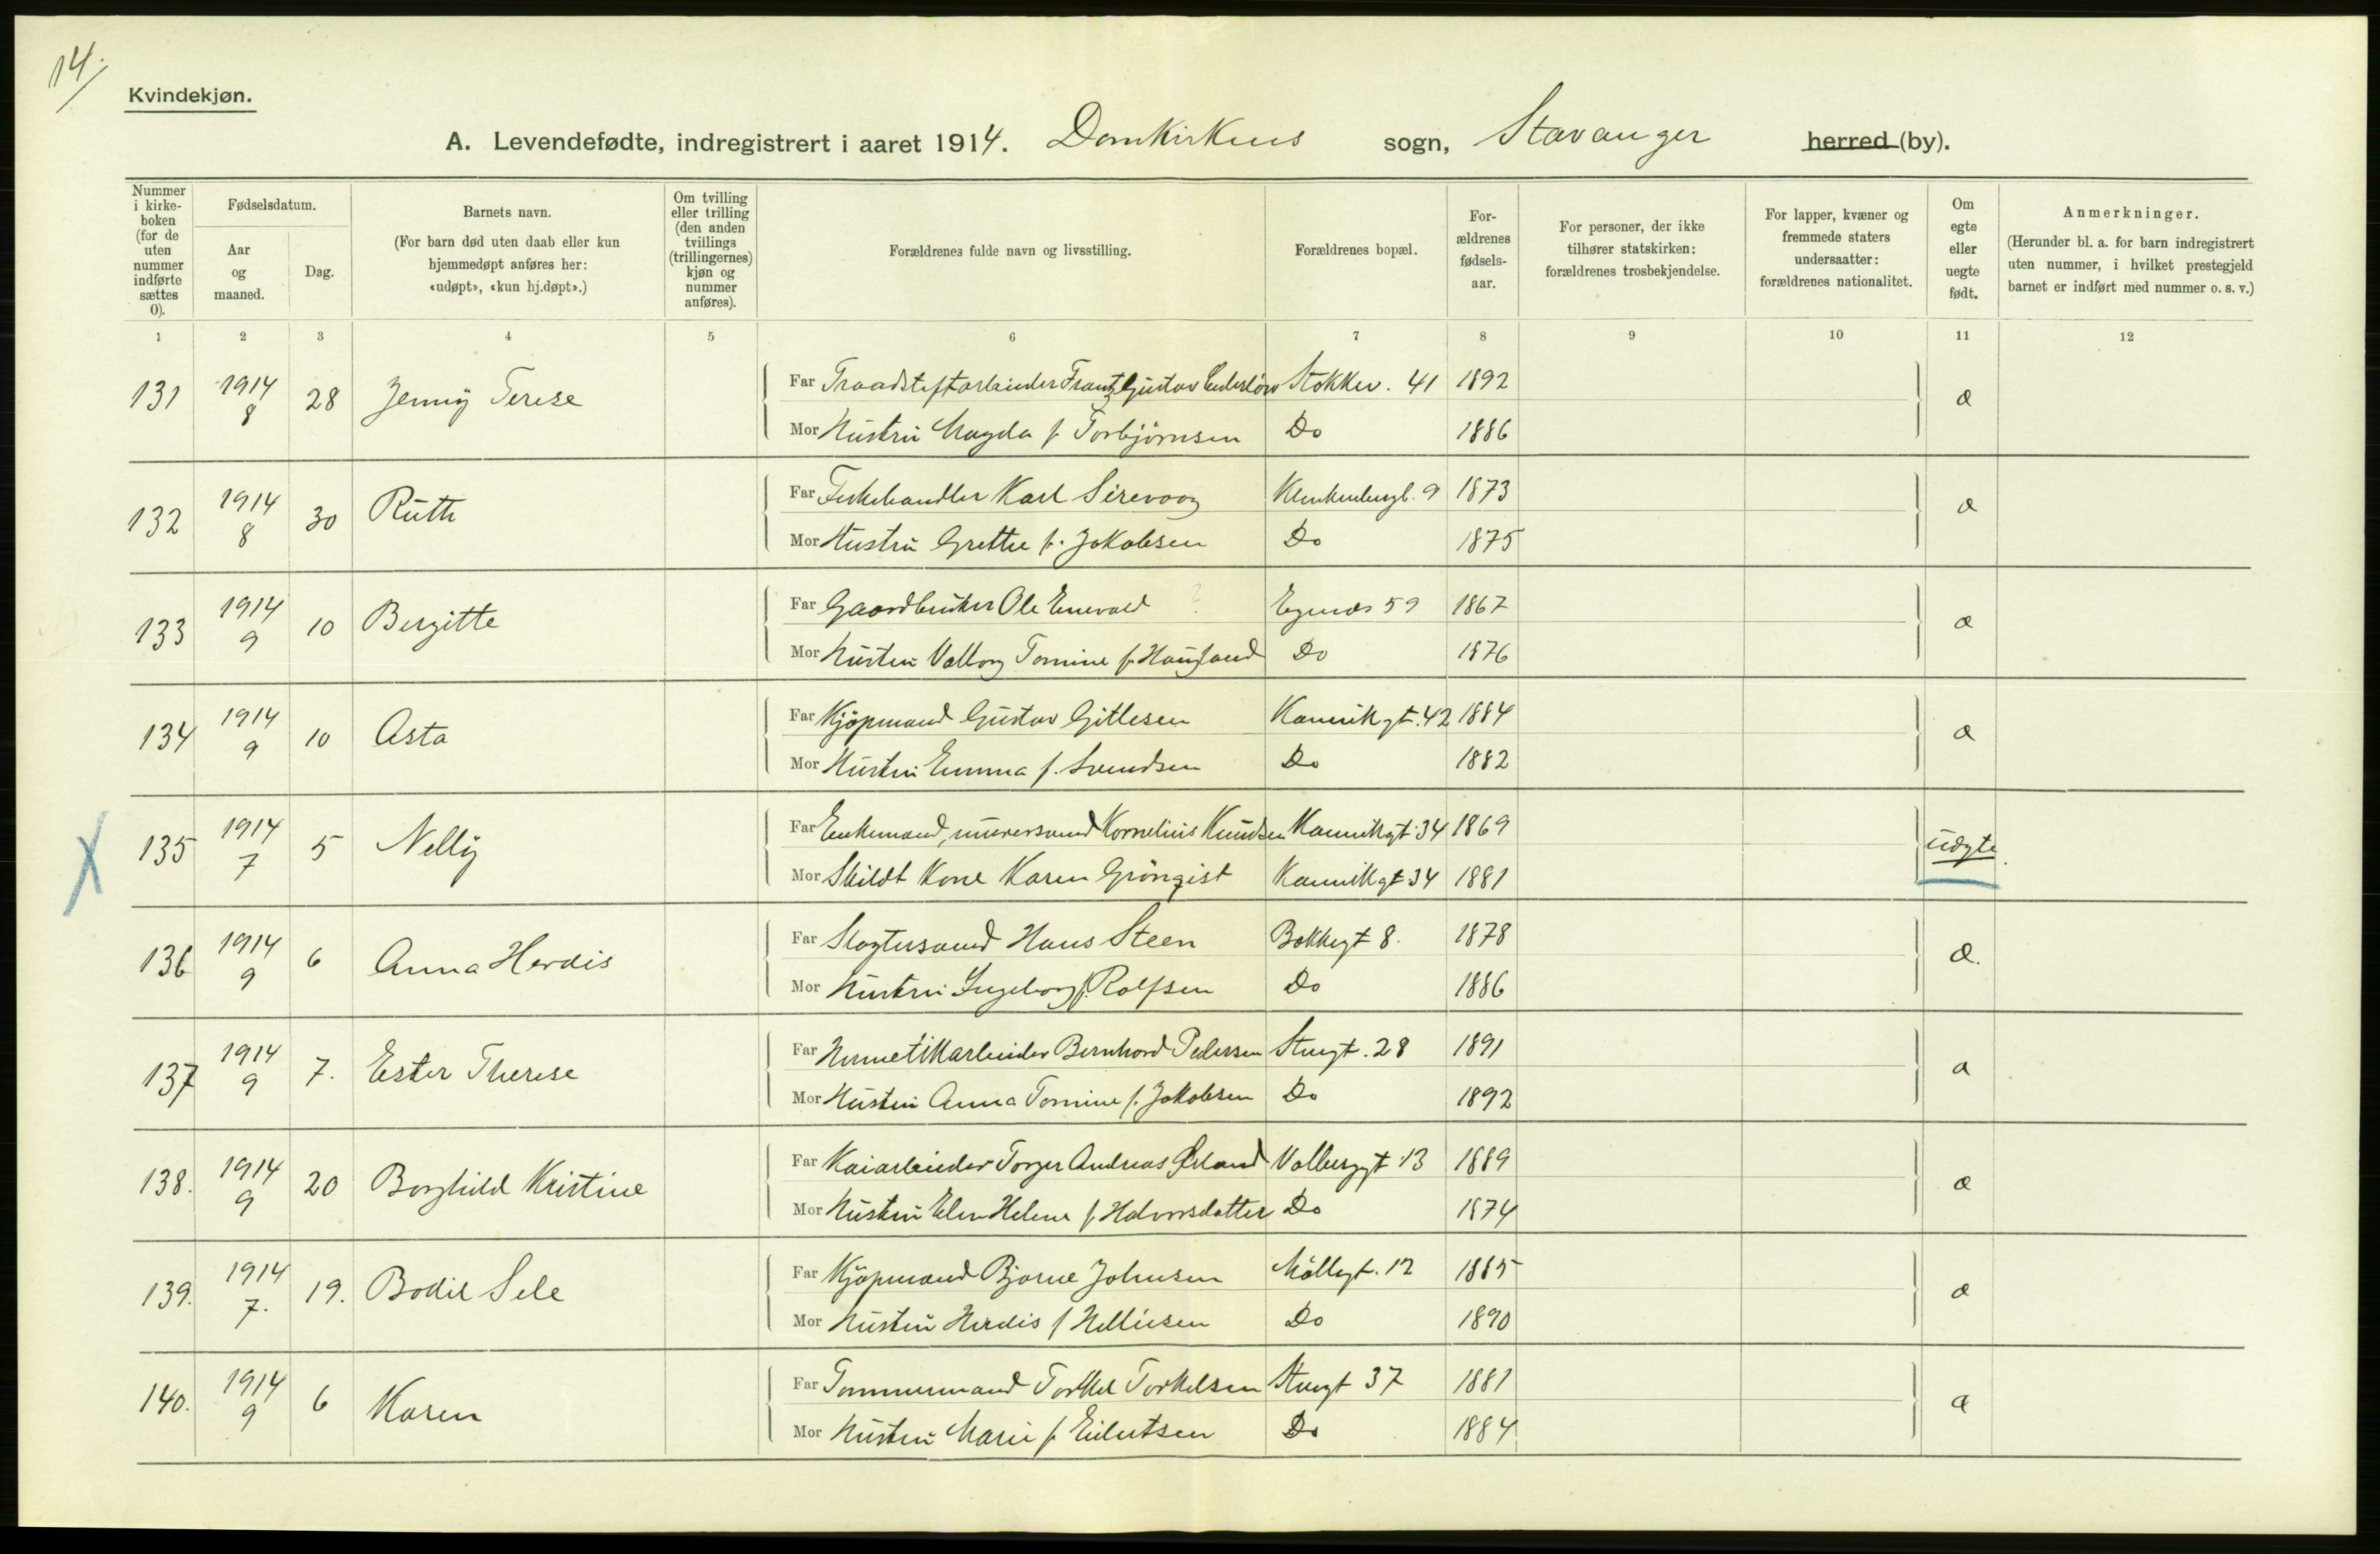 14.
Kvindekjøn.
A. Levendefødte, indregistrert i aaret 1914. Domkirkens sogn, Stavanger herred (by).
Nummer i kirke-boken (for de uten nummer indførte sættes 0).
Fødselsdatum.
Aar og maaned.
Dag.
Barnets navn.
(For barn død uten daab eller kun hjemmedøpt anføres her: «udøpt», «kun hj.døpt».)
Om tvilling eller trilling (den anden tvillings (trillingernes) kjøn og nummer anføres).
Forældrenes fulde navn og livsstilling.
Forældrenes bopæl.
For-ældrenes fødsels-aar.
For personer, der ikke tilhører statskirken: forældrenes trosbekjendelse.
For lapper, kvæner og fremmede staters undersaatter: forældrenes nationalitet.
Om egte eller uegte født.
Anmerkninger.
(Herunder bl. a. for barn indregistrert uten nummer, i hvilket prestegjeld barnet er indført med nummer o. s. v.)
1 2 3 4 5 6 7 8 9 10 11 12
131 1914 8 28 Jenny Terese
Far Traadstiftarbeider Frantz Gustav Stokkev. 41 1892
Mor Hustru Magda f Torbjörnsen Do 1886
132 1914 8 30 Ruth
Far Fiskehandler Karl Sirevaag 9 1873
Mor Hustru Grethe f. Jakobsen Do 1875
133 1914 9 10 Bergitte
Far Gaardbruker Ole Enevald ? Egenes 59 1867
Mor Hustru Valborg Tomine f. Do 1876
134 1914 9 10 Asta
Far Kjöpmand Gustav Gitlesen Kannikgt. 42 1884
Mor Hustru Emma f. Svendsen Do 1882
135 1914 7 5 Nelly
Far Enkemand, murersvend Kornelius Knudsen Kannikgt. 34 1869
Mor Skildt Kone Karen Grönqist Kannikgt. 34 1881
uægte
136 1914 9 6 Anna Herdis
Far Slagtersvend Hans Steen Bakkegt 8. 1878
Mor Hustru Ingeborg f. Rolfsen Do 1886
æ.
137 1914 9 7. Ester Therese
Far Hermetikarbeider Bernhard Pedersen 28 1891
Mor Hustru Anna Tomine f. Jakobsen Do 1892
138. 1914 9 20 Borghild Kristine
Far Kaiarbeider Torger Andreas Valbergt 13 1889
Mor Hustru Elen Helene f Halvorsdatter Do 1874
139. 1914 7. 19. Bodil Sele
Far Kjöpmand Bjarne Johnsen Möllegt. 12 1885
Mor Hustru Herdis f Helliesen Do 1890
140. 1914 9 6 Karen
Far Tømmermand Torkel Torkelsen 37 1881
Mor Hustru Marie f Eilertsen Do 1884